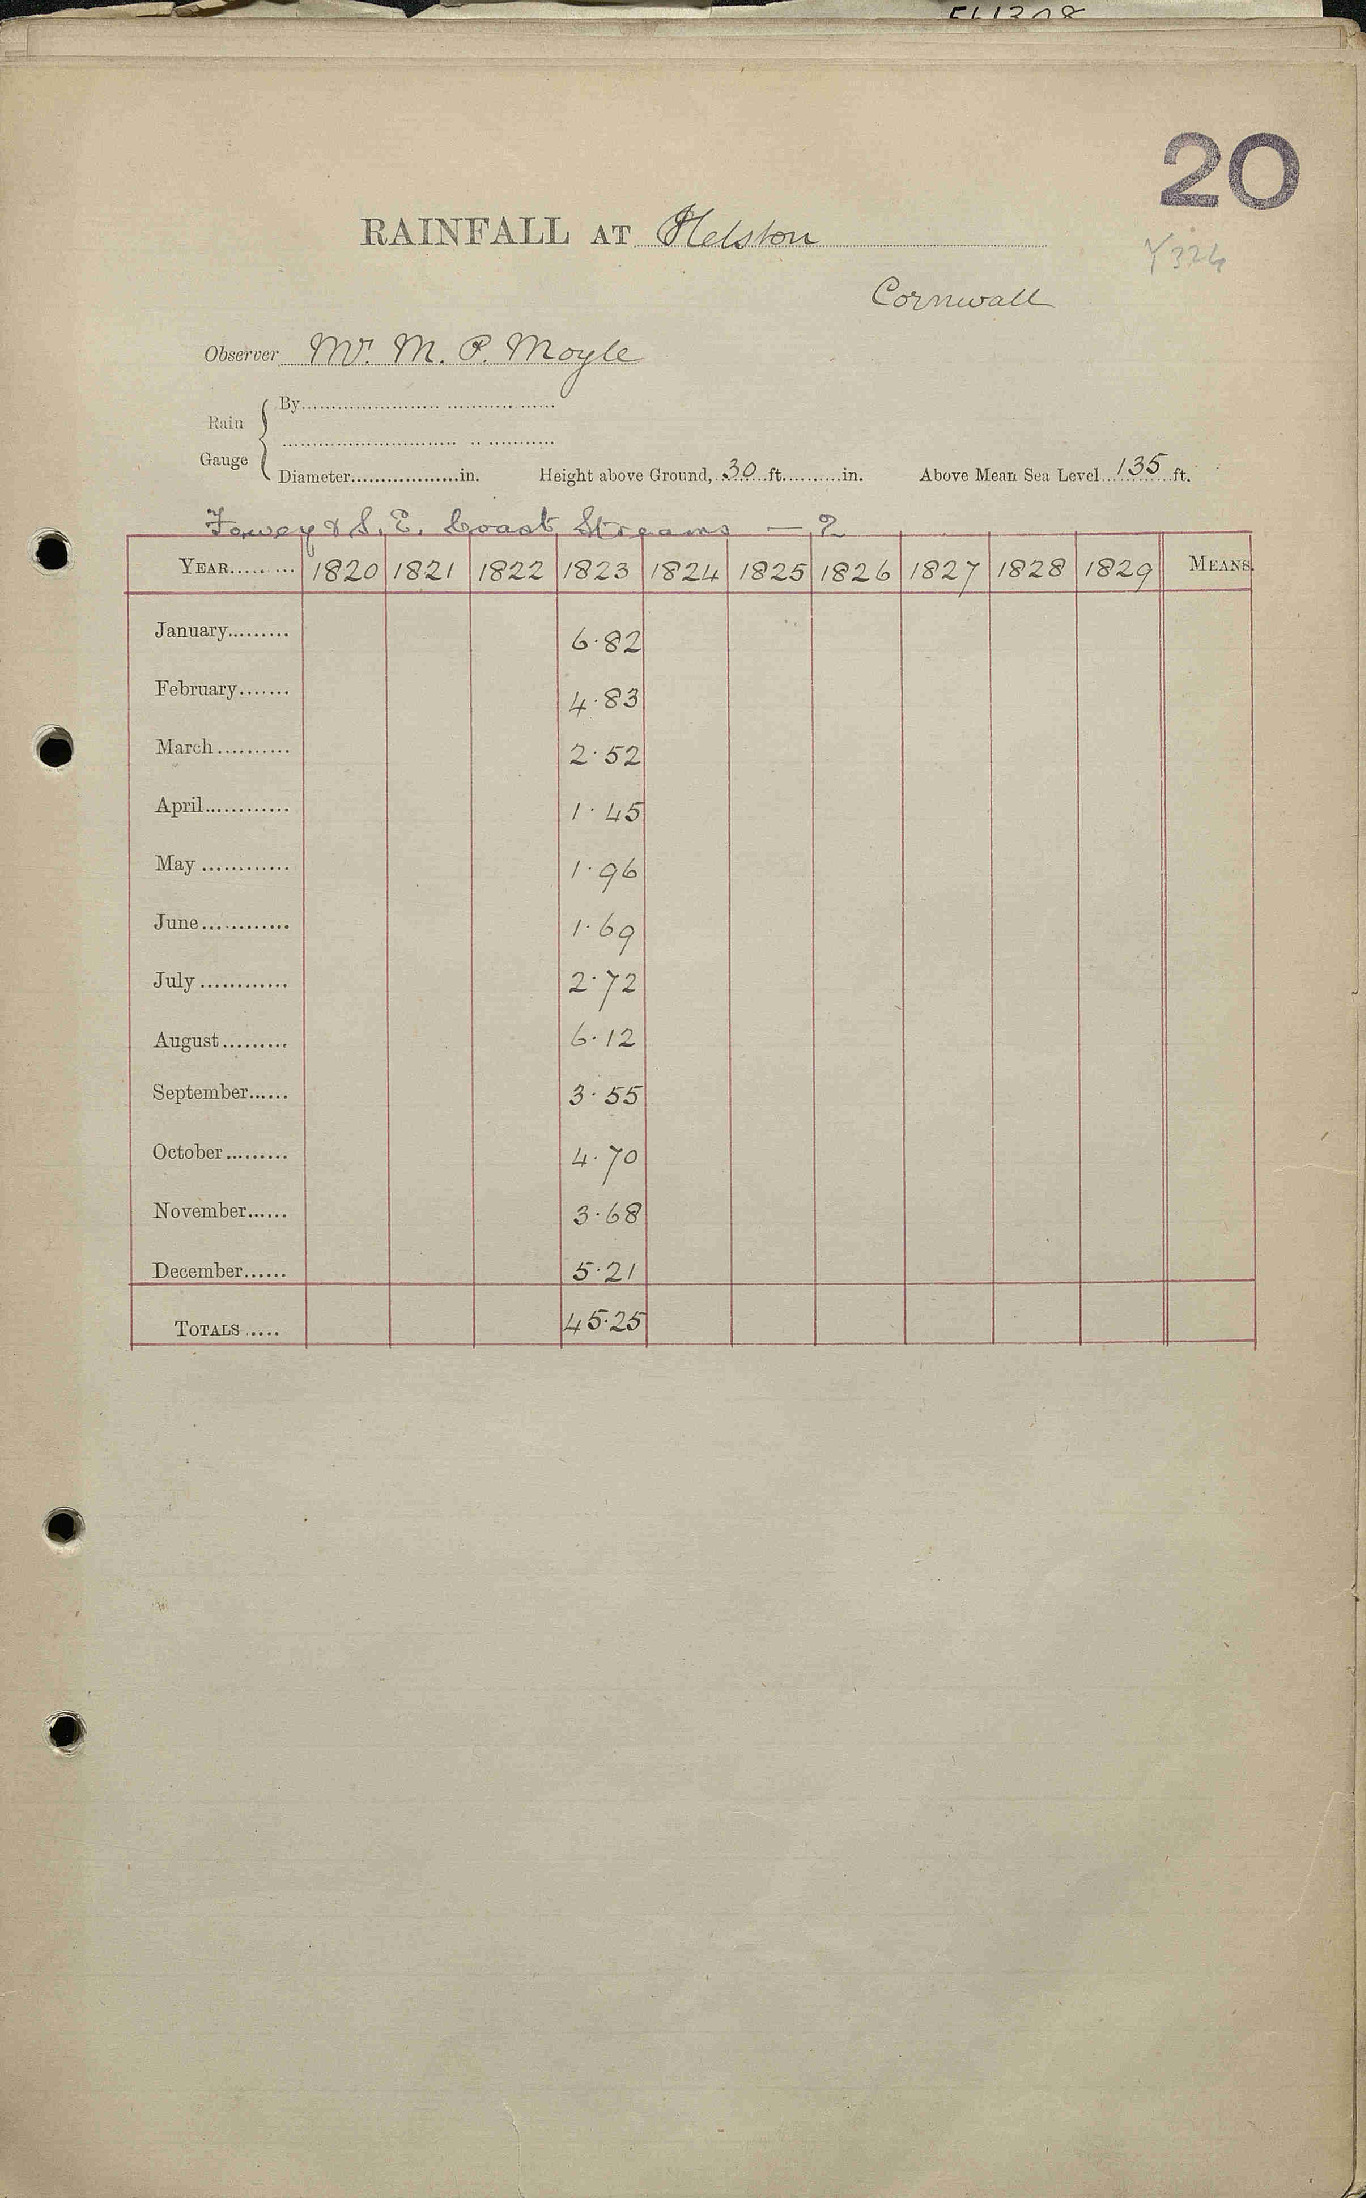 20
RAINFALL AT Helston
Y324
Cornwall
Observer Mr. M. P. Moyle
Rain Gauge
By
Diameter in. Height above Ground, 30 ft. in. Above Mean Sea Level 135 ft.
Fowey & S. E. Coast Streams — 2
YEAR 1820 1821 1822 1823 1824 1825 1826 1827 1828 1829 MEANS.
January 6.82
February 4.83
March 2.52
April 1.45
May 1.96
June 1.69
July 2.72
August 6.12
September 3.55
October 4.70
November 3.68
December 5.21
TOTALS 45.25